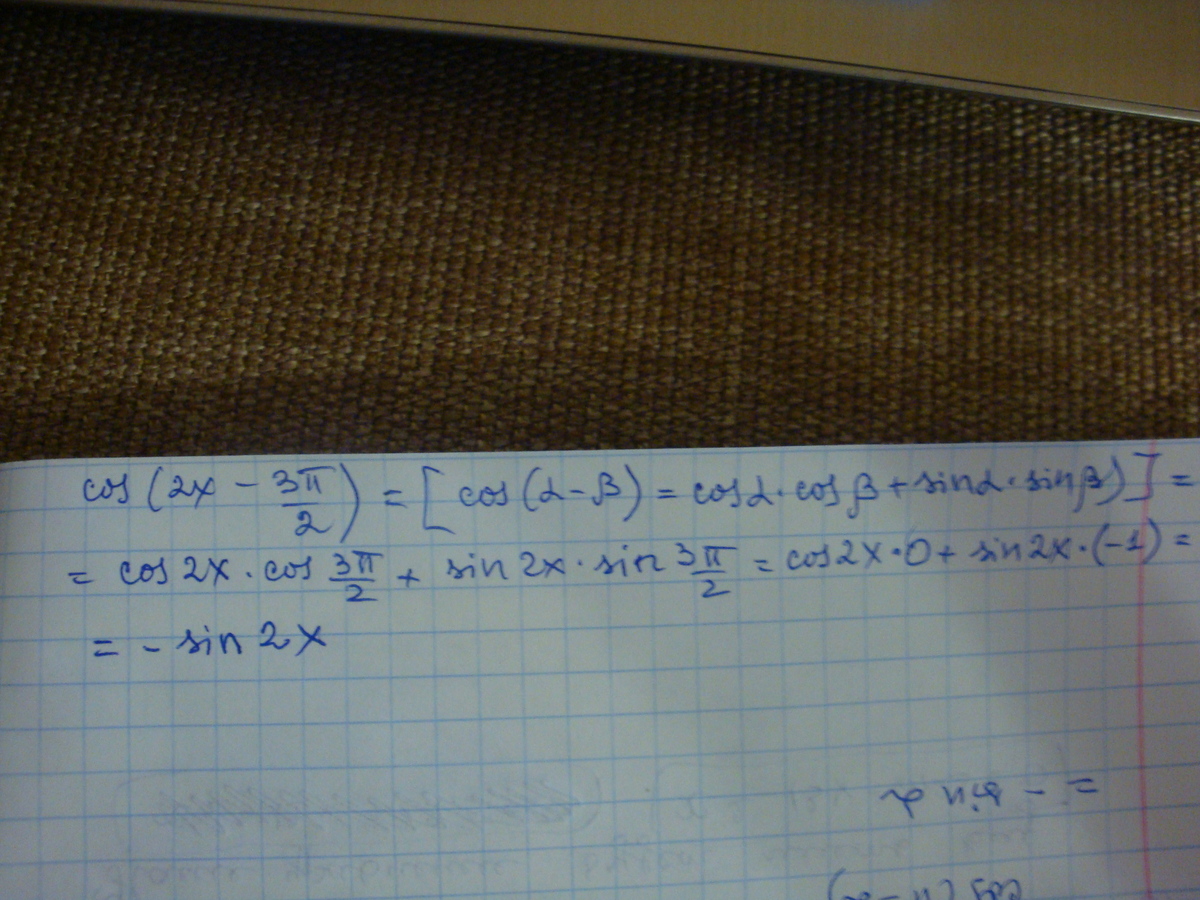 cos (2x - 3π/2) = [cos(α-β) = cosα·cosβ + sinα·sinβ)] =
= cos 2x · cos 3π/2 + sin 2x · sin 3π/2 = cos 2x · 0 + sin 2x · (-1) =
= - sin 2x
= - sin α